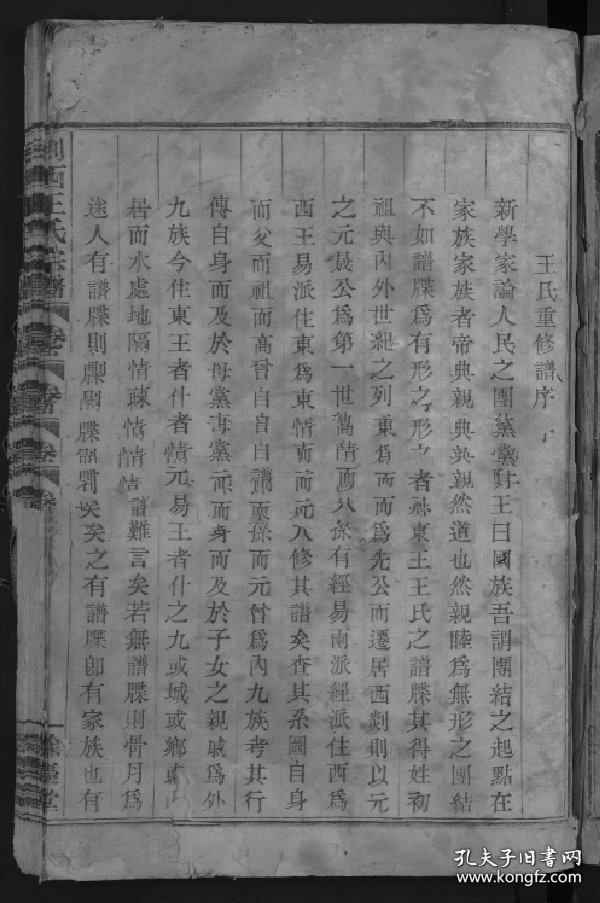 王氏重修譜序
新學家論人民之團黨黨 王曰國族吾謂團結之起點在
家族家族者帝典親典 親然道也然親睦爲無形之團結
不如譜牒爲有形之形之者 東王王氏之譜牒其得姓初
祖與內外世紀之列東爲西而爲先公而遷居西剡則以元
之元晨公爲第一世 情而八係有經易兩派經派住西爲
西王易派住東爲東情 而元八修其譜矣查其系圖自身
而父而祖而高曾自自自 而孫而元曾爲內九族考其行
傳自身而及於母黨 黨 而身而及於子女之親戚爲外
九族今住東王者什者情元易王者什之九或城或鄉
居而水處地隔情疎情情情 難言矣若無譜牒則骨月爲
途人有譜牒則 牒 矣矣之有譜牒卽有家族也有
西王氏宗譜
卷
堂
孔夫子旧书网
www.kongfz.com